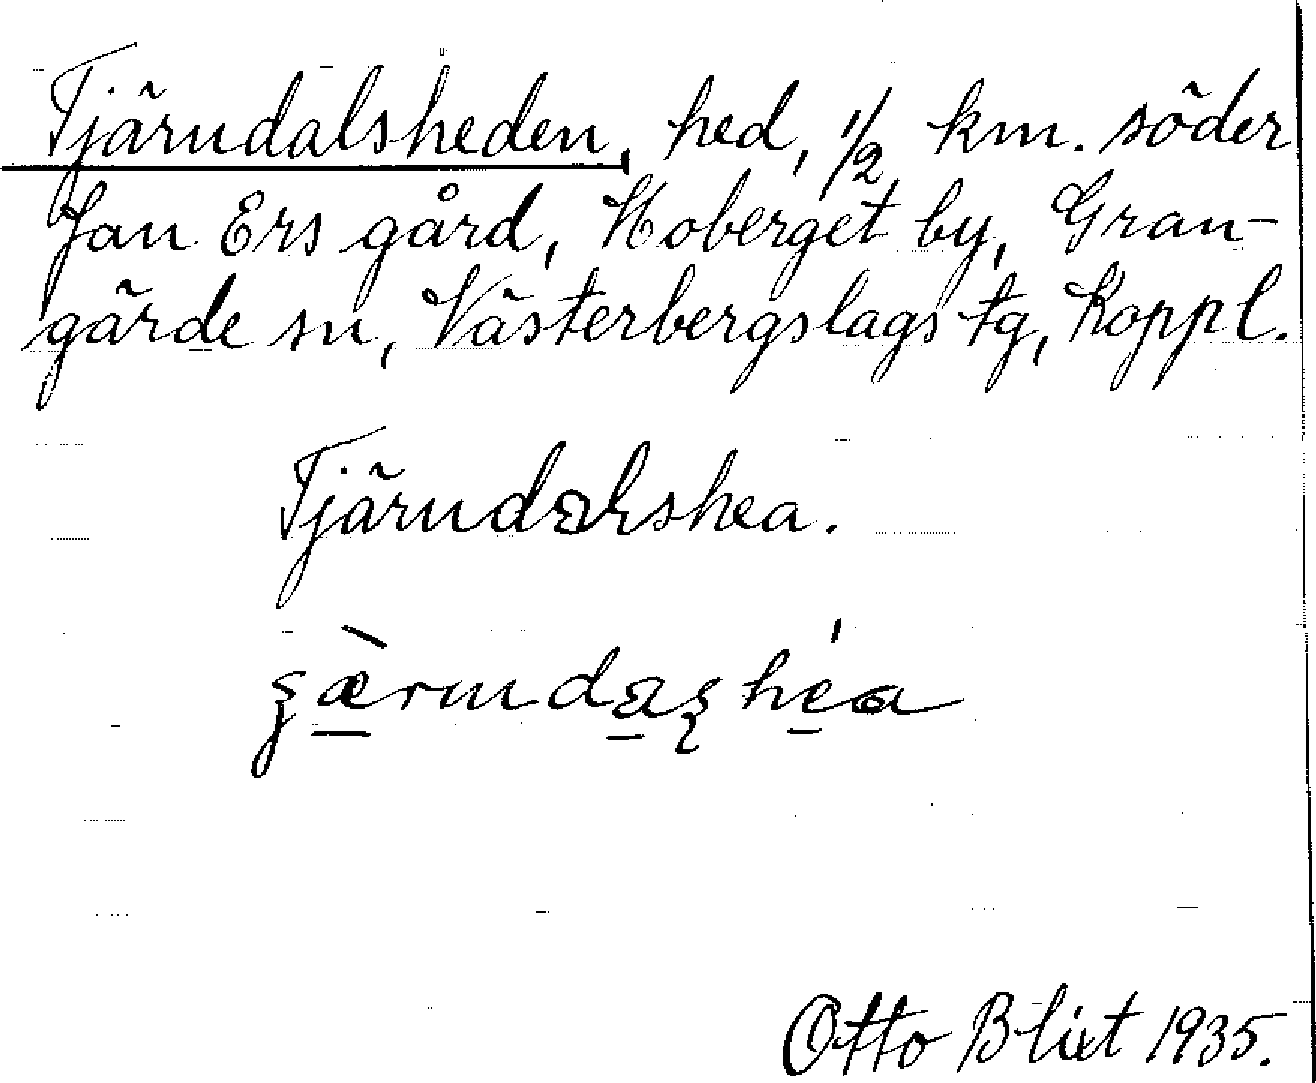 Tjärndalsheden, hed, 1/2 km. söder
Jan Ers gård, Hoberget by, Gran-
gärde sn, Västerbergslags tg, Koppl.
Tjärndalshea.
Otto Blixt 1935.